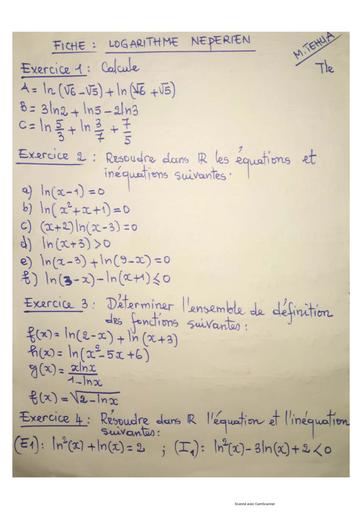 FICHE : LOGARITHME NEPERIEN
M. TEHUA
Tle
Exercice 1 : Calcule
A = ln(√6 - √5) + ln(√6 + √5)
B = 3ln2 + ln5 - 2ln3
C = ln 5/3 + ln 3/7 + 7/5
Exercice 2 : Resoudre dans IR les équations et
inéquations suivantes.
a) ln(x-1) = 0
b) ln(x²+x+1) = 0
c) (x+2)ln(x-3) = 0
d) ln(x+3) > 0
e) ln(x-3) + ln(9-x) = 0
f) ln(3-x) - ln(x+1) ≤ 0
Exercice 3 : Déterminer l'ensemble de définition
des fonctions suivantes :
f(x) = ln(2-x) + ln(x+3)
h(x) = ln(x²-5x+6)
g(x) = xlnx/1-lnx
f(x) = √2-lnx
Exercice 4 : Résoudre dans IR l'équation et l'inéquation
suivantes :
(E₁) : ln²(x) + ln(x) = 2 ; (I₁) : ln²(x) - 3ln(x) + 2 < 0
Scanné avec CamScanner